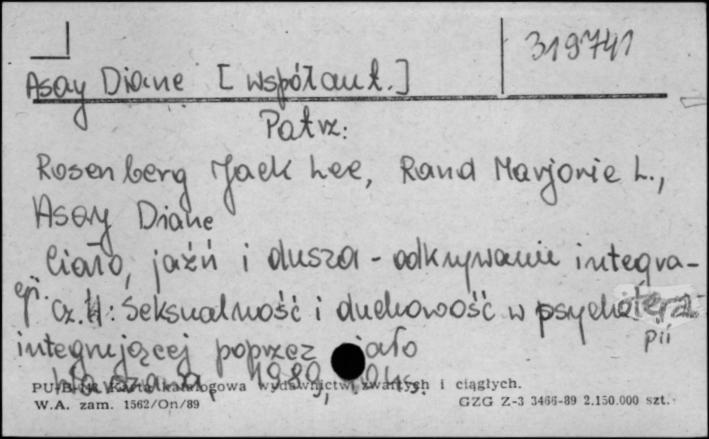 319741
Asay Diane [współaut.]
Patrz:
Rosenberg Jack Lee, Rand Marjorie L.,
Asay Diane
Ciało, jaźń i dusza - odkrywanie integra-
cji. Cz. II: Seksualność i duchowość w psychotera-
pii
integrującej poprzez ciało
1989,
PU-B- Karta katalogowa wydawnictw zwartych i ciągłych.
W.A. zam. 1562/On/89 GZG Z-3 3466-89 2.150.000 szt.